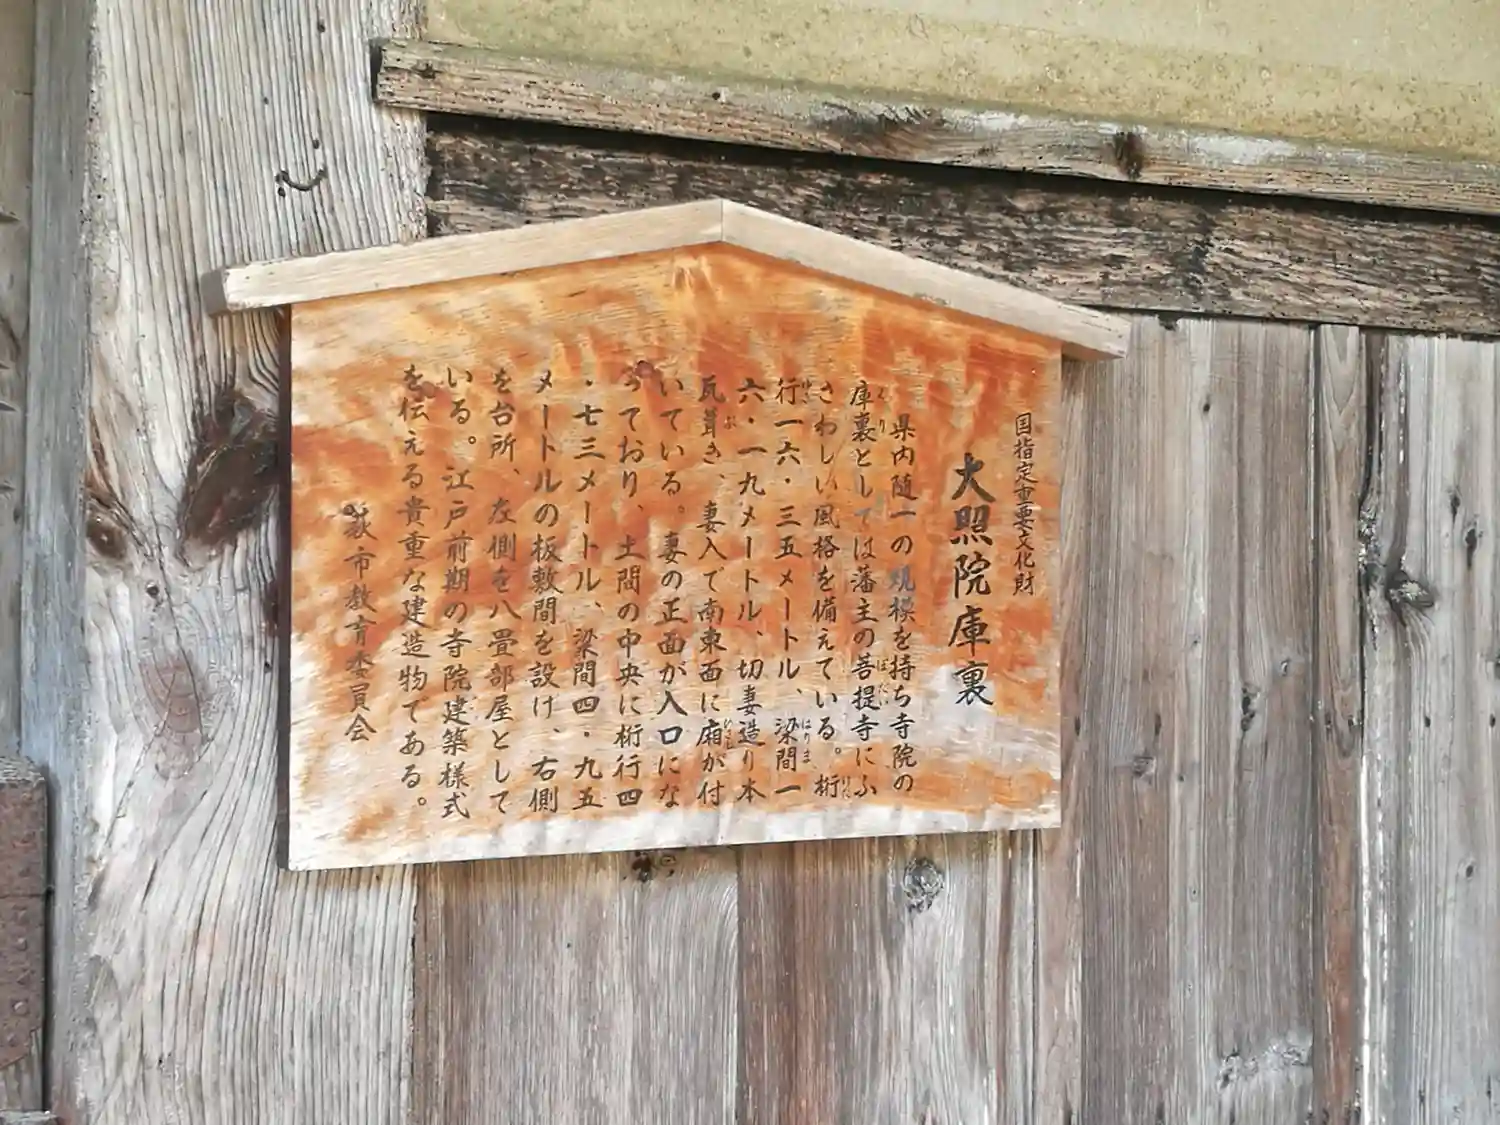 国指定重要文化財
大照院庫裏
県内随一の規模を持ち寺院の
庫裏としては藩主の菩提寺にふ
さわしい風格を備えている。桁
行一六・三五メートル、梁間一
六・一九メートル、切妻造り本
瓦葺き、妻入で南東面に廂が付
いている。妻の正面が入口にな
っており、土間の中央に桁行四
・七三メートル、梁間四・九五
メートルの板敷間を設け、右側
を台所、左側を八畳部屋として
いる。江戸前期の寺院建築様式
を伝える貴重な建造物てある。
萩市教育委員会